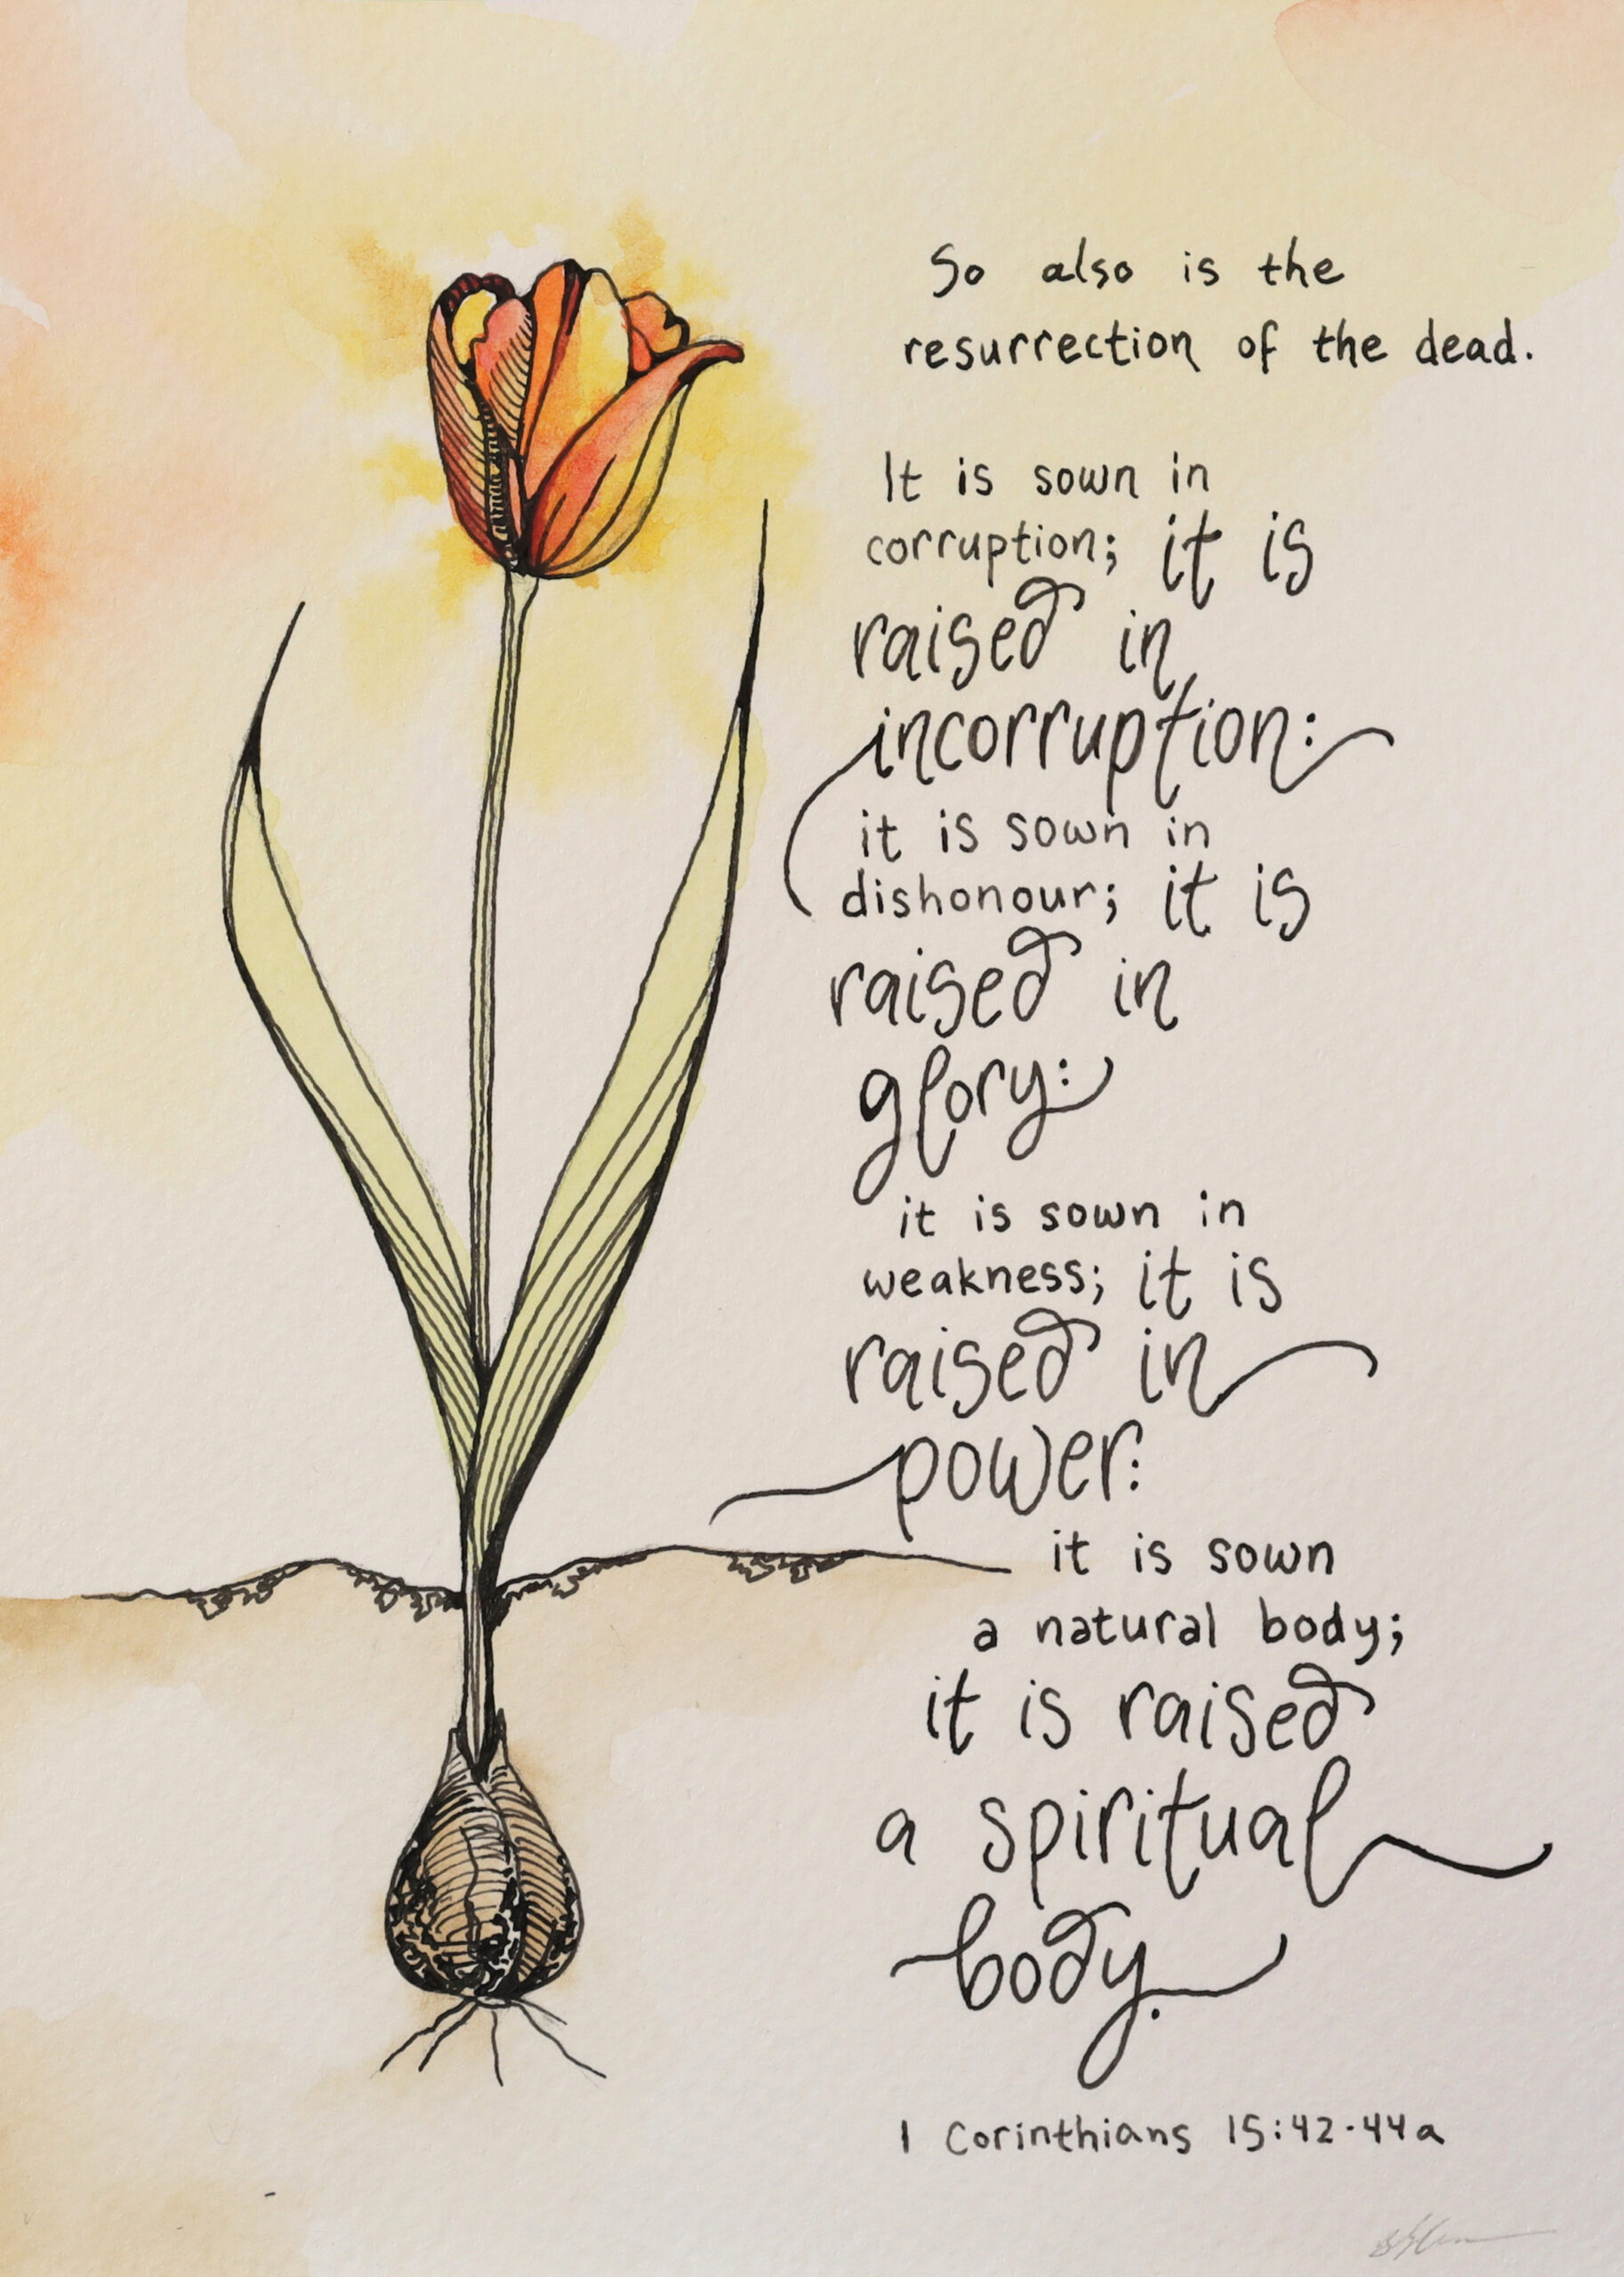 So also is the
resurrection of the dead.
It is sown in
corruption; it is
raised in
incorruption:
it is sown in
dishonour; it is
raised in
glory:
it is sown in
weakness; it is
raised in
power:
it is sown
a natural body;
it is raised
a spiritual
body.
1 Corinthians 15:42-44a